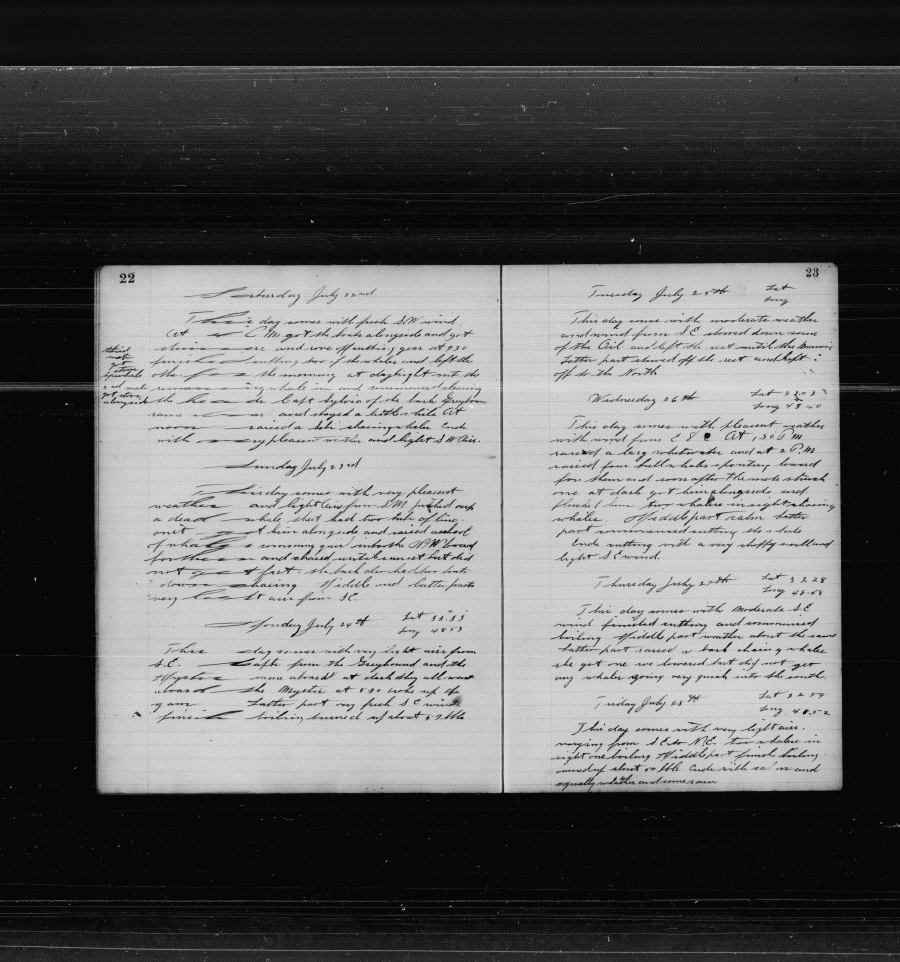 22
Saturday July 22nd
This day comes with fresh S.W wind
At P.M got the bark alongside and got
and one off cutting gear at 930
finished cutting two of the whales and left the
other for the morning at daylight cut the
whaling and commenced clearing
the Capt Sylvia of the bark Greyhound
came and stayed a little while At
noon raised a chasing whales Ends
with very pleasant weather and light S W Airs.
third
mate
got
alongside
Sunday July 23rd
This day comes with very pleasant
weather and light airs from S.W picked up
a dead whale that had two tubs of line
on it got him alongside and raised
of whales coming quick into the Lowered
for them and chased until sunset but did
not get fast the bark also had two boats
down chasing Middle and latter parts
very light airs from S.E.
Monday July 24th Lat 33.33
Long 48.53
This day comes with very light airs from
S.E. Capts from the Greyhound and the
Mystic came aboard at dark they all went
aboard the Mystic at 8.30 broke up the
gam Latter part very fresh S E wind
finish boiling turned up about 57 bbls
23
Tuesday July 25th Lat
Long
This day comes with moderate weather
and wind from S E stowed down some
of the Oil and left the rest until the
Latter part stowed off the rest and kept
off to the North
Wednesday 26th Lat 33.03
Long 48.40
This day comes with pleasant weather
with wind from E S E At 1.30 P M
raised a large whitewater and at 2 P.M
raised four bull whales spouting lowered
for them and soon after the mate struck
one at dark got him alongside and
fluked him two whalers in sight chasing
whales Middle part calm Latter
part commenced cutting the whale
Ends cutting with a very choppy swell and
light S E wind.
Thursday July 27th Lat 33.28
Long 48.48
This day comes with Moderate S.E
wind finished cutting and commenced
boiling Middle part weather about the same
Latter part raised a bark chasing whales
she got one we lowered but did not get
any whales going very quick into the south.
Friday July 28th Lat 32.59
Long 48.52
This day comes with very light airs.
varying from S.E to N.E. two whalers in
sight one boiling Middle part finish boiling
turned up about 50 bbls Ends with calm and
squally weather and some rain